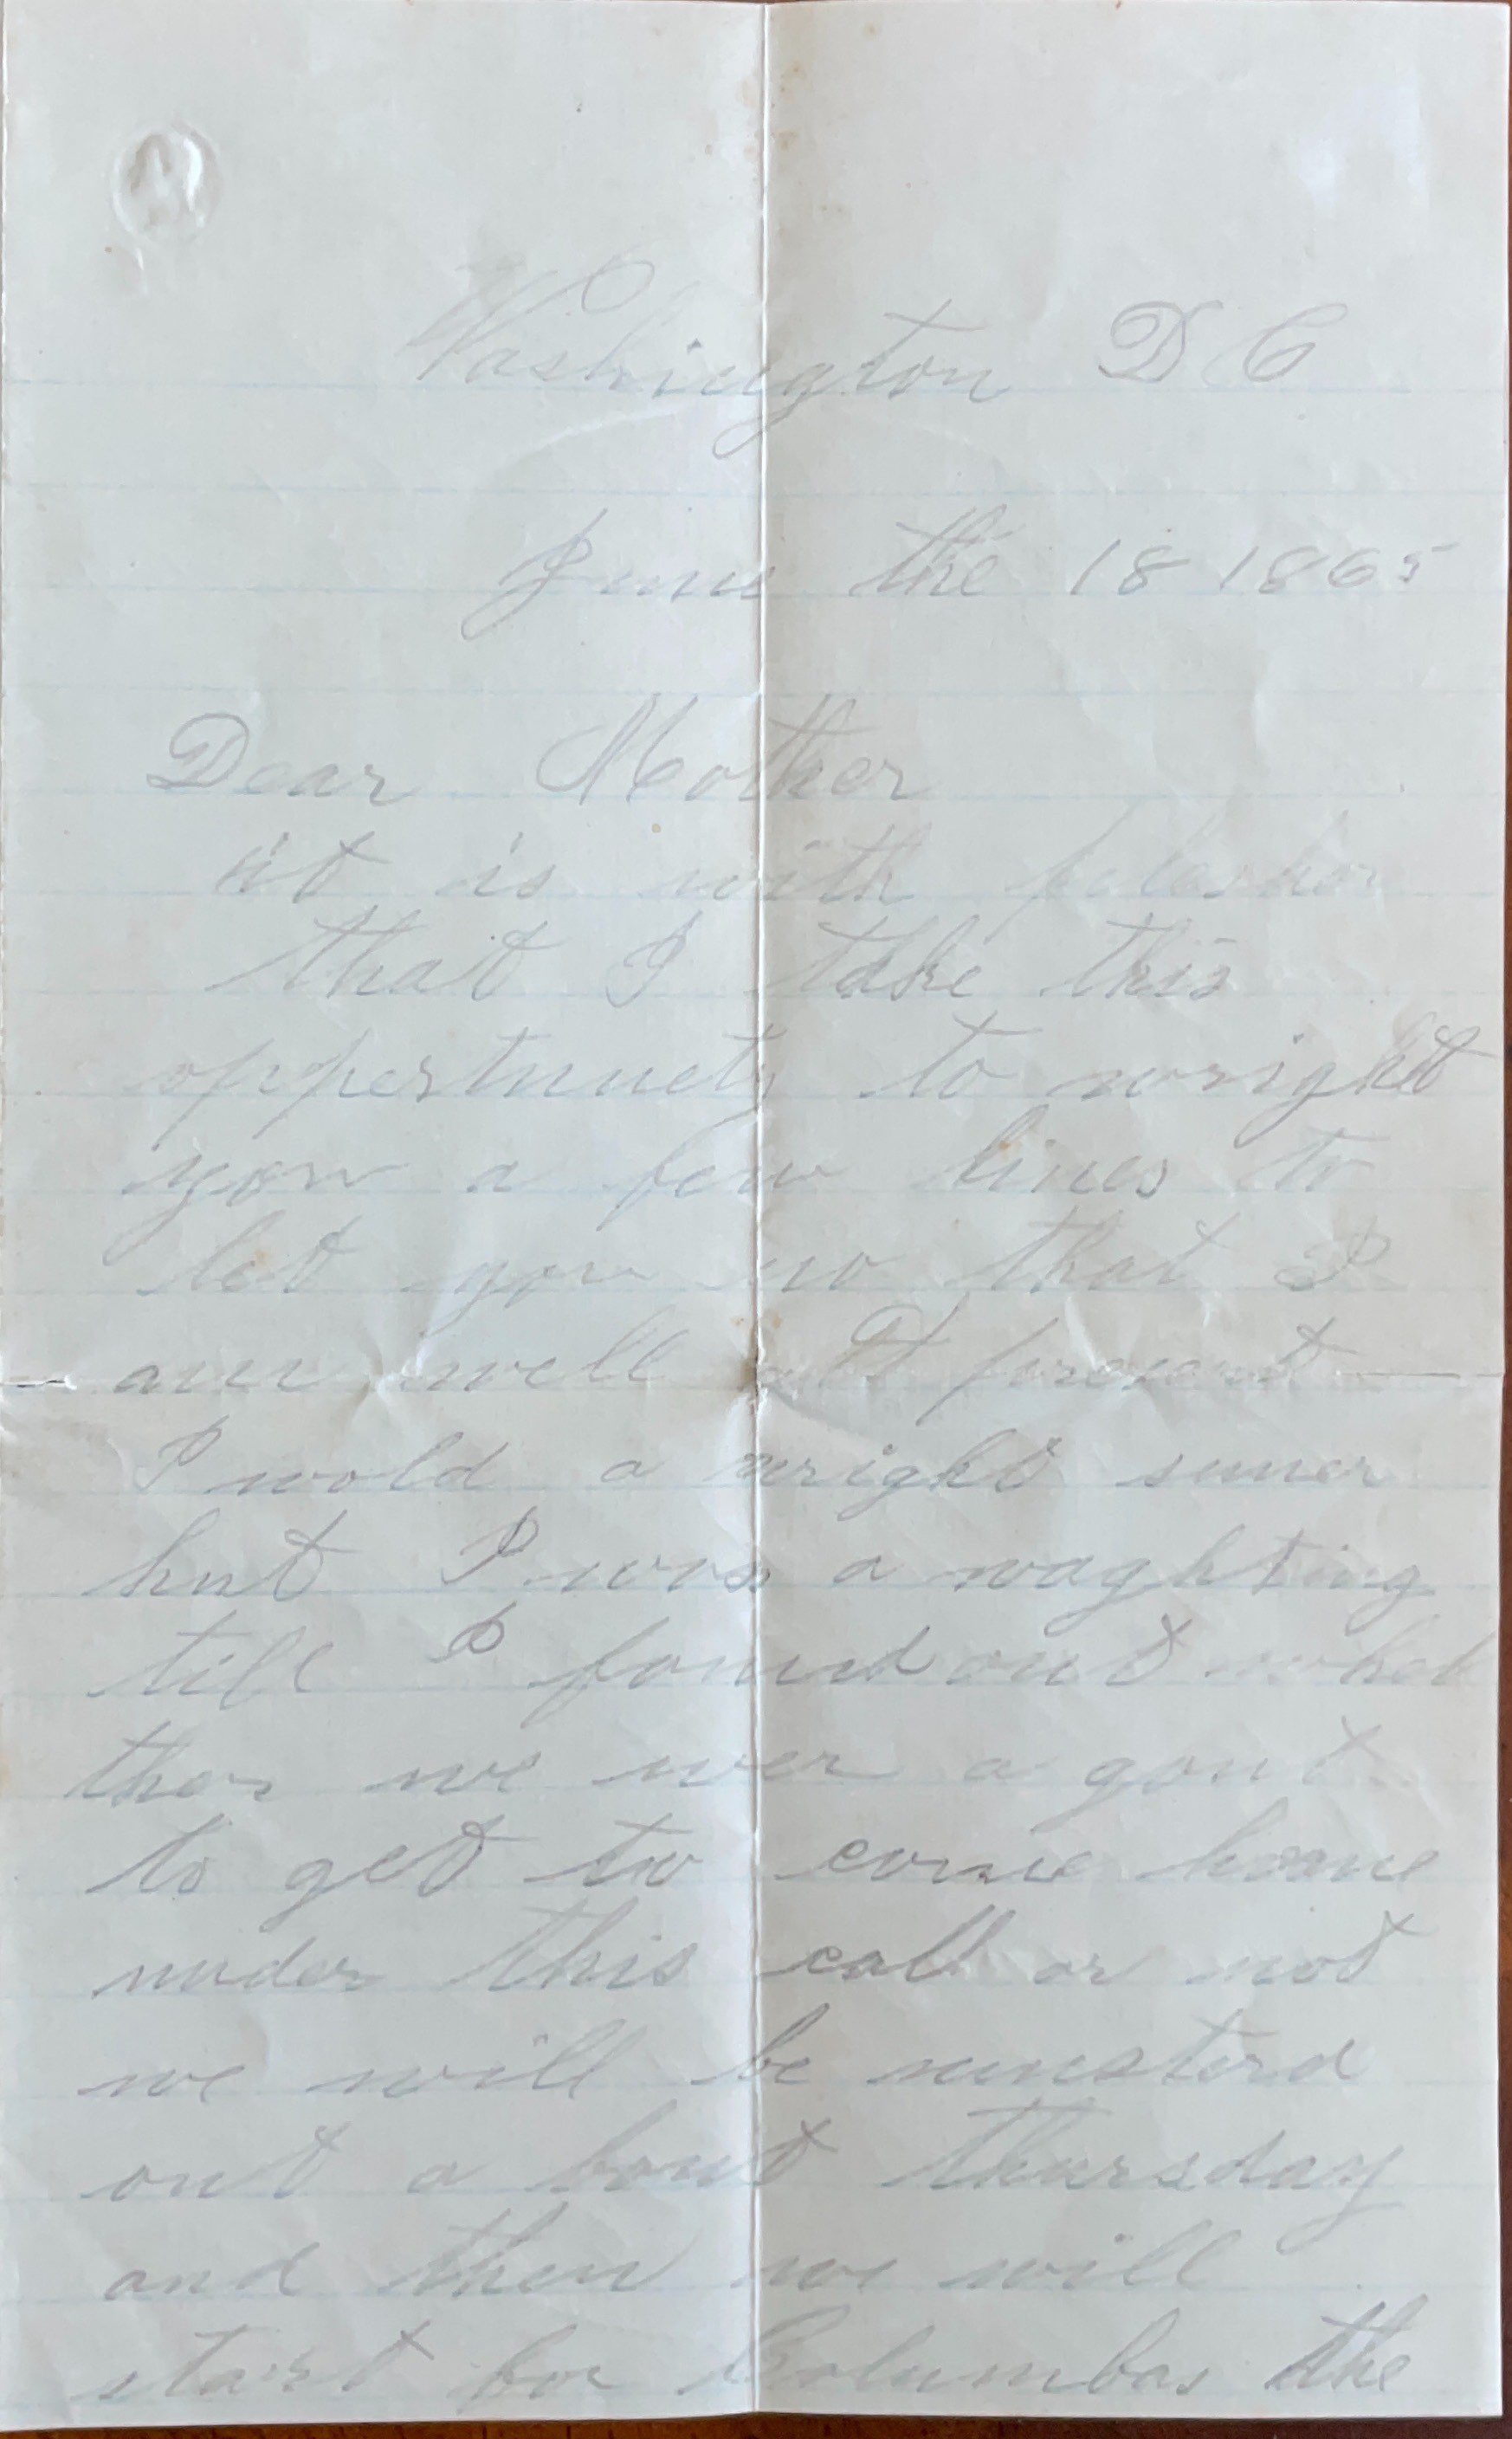 Washington D C
June the 18 1865
Dear Mother
it is with pleashor
that I take this
oppertunety to wright
you a few lines to
let you no that I
am well at present
I wold a wright suner
but I was a waghting
till I found out whet
ther we wer a gout
to get to come home
under this call or not
we will be musterd
out a bout thursday
and then we will
start for Columbas the